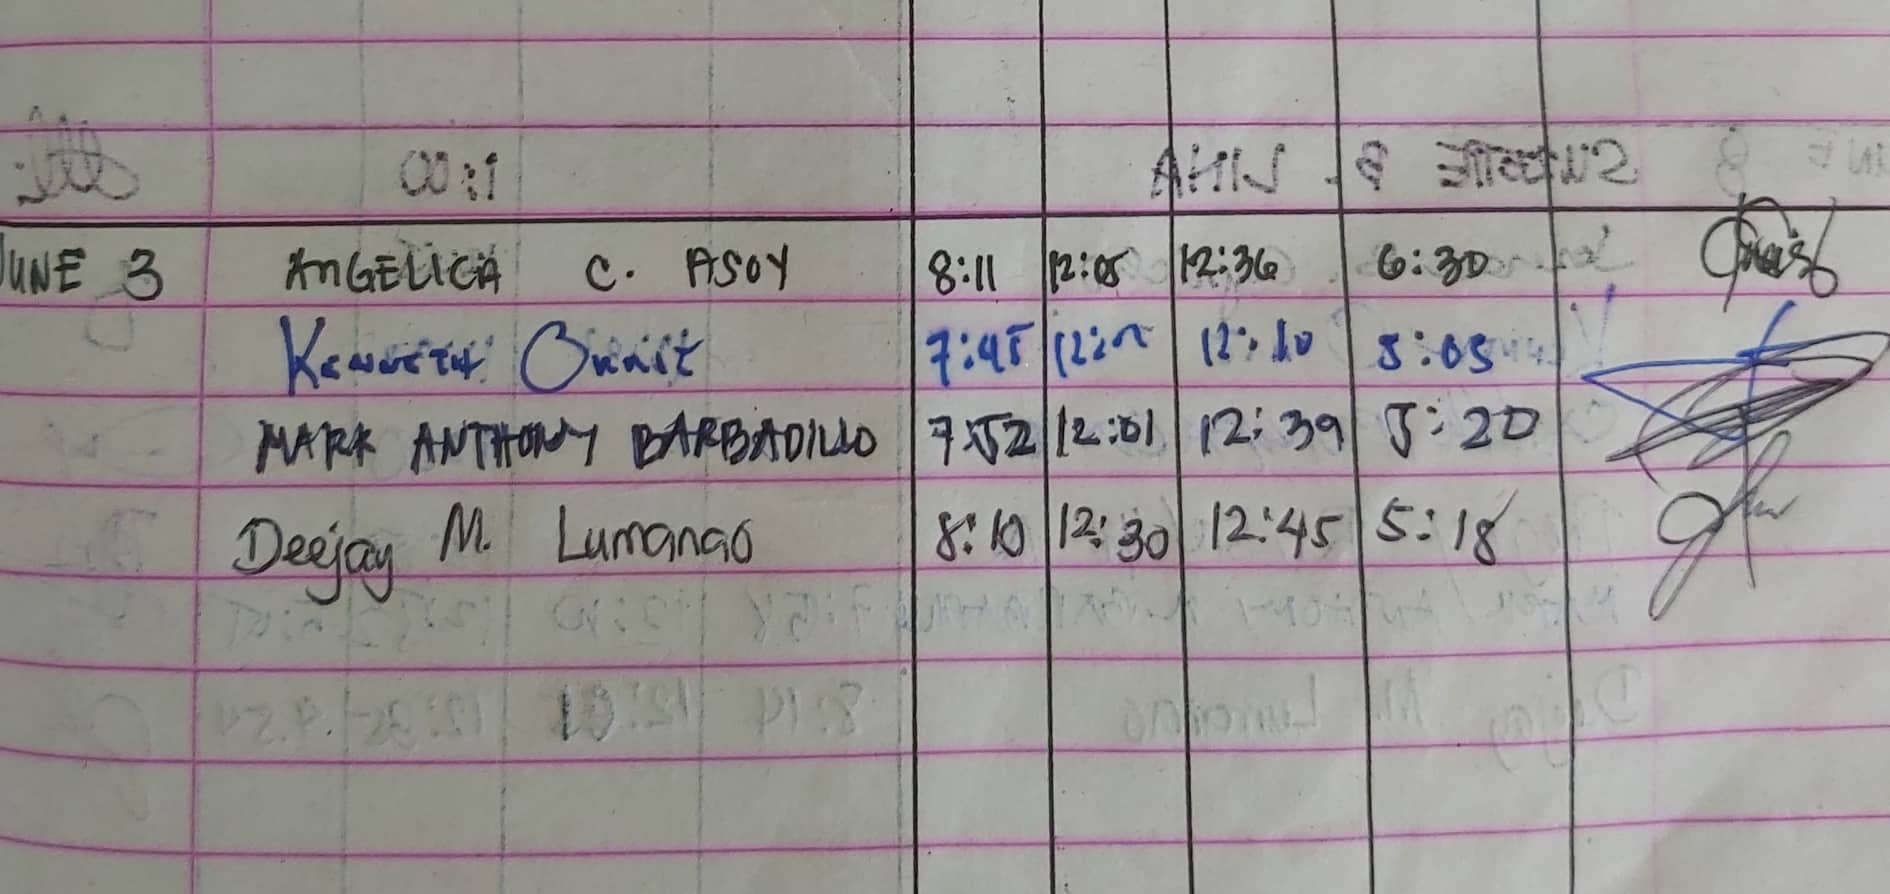 JUNE 3 ANGELICA C. ASOY 8:11 12:05 12:36 6:30
Kenneth 7:45 12:10 5:05
MARK ANTHONY BARBADILLO 7:52 12:01 12:39 5:20
Deejay M. Lumanao 8:10 12:30 12:45 5:18